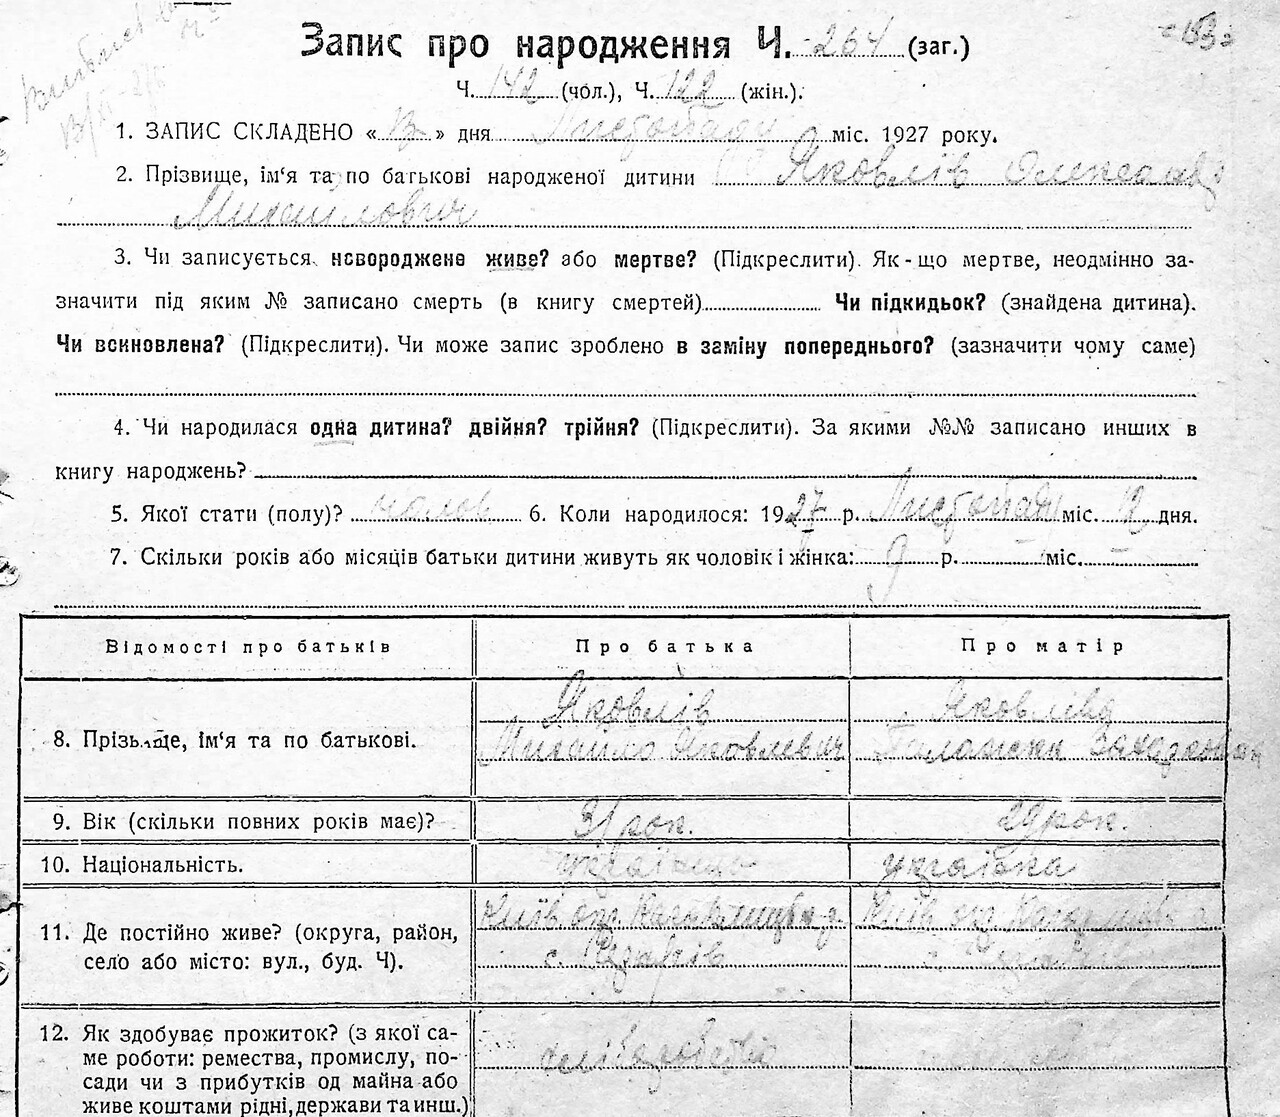 Запис про народження Ч. 264 (заг.)
Ч. 142 (чол.), Ч. 122 (жін.).
1. ЗАПИС СКЛАДЕНО « » дня Листопаду міс. 1927 року.
2. Прізвище, ім‘я та по батькові народженої дитини Яковлів Олександр
Михайлович
3. Чи записується новороджене живе? або мертве? (Підкреслити). Як-що мертве, неодмінно за-
значити під яким № записано смерть (в книгу смертей) Чи підкидьок? (знайдена дитина).
Чи всиновлена? (Підкреслити). Чи може запис зроблено в заміну попереднього? (зазначити чому саме)
4. Чи народилася одна дитина? двійня? трійня? (Підкреслити). За якими №№ записано инших в
книгу народжень?
5. Якої стати (полу)? чолов 6. Коли народилося: 1927 р. Листопаду міс. 12 дня.
7. Скільки років або місяців батьки дитини живуть як чоловік і жінка: 9 р. — міс. —
Відомості про батьків Про батька Про матір
Яковлів Яковліва
8. Прізвище, ім‘я та по батькові. Михайло Яковлевич
9. Вік (скільки повних років має)? 31 рок. 29 рок.
10. Національність. українець українка
Київ окр. Кагарлицьк р. Київ окр. Кагарлицьк р.
11. Де постійно живе? (округа, район,
село або місто: вул., буд. Ч). с.
12. Як здобуває прожиток? (з якої са-
ме роботи: ремества, промислу, по- хліборобство
сади чи з прибутків од майна або
живе коштами рідні, держави та инш.)